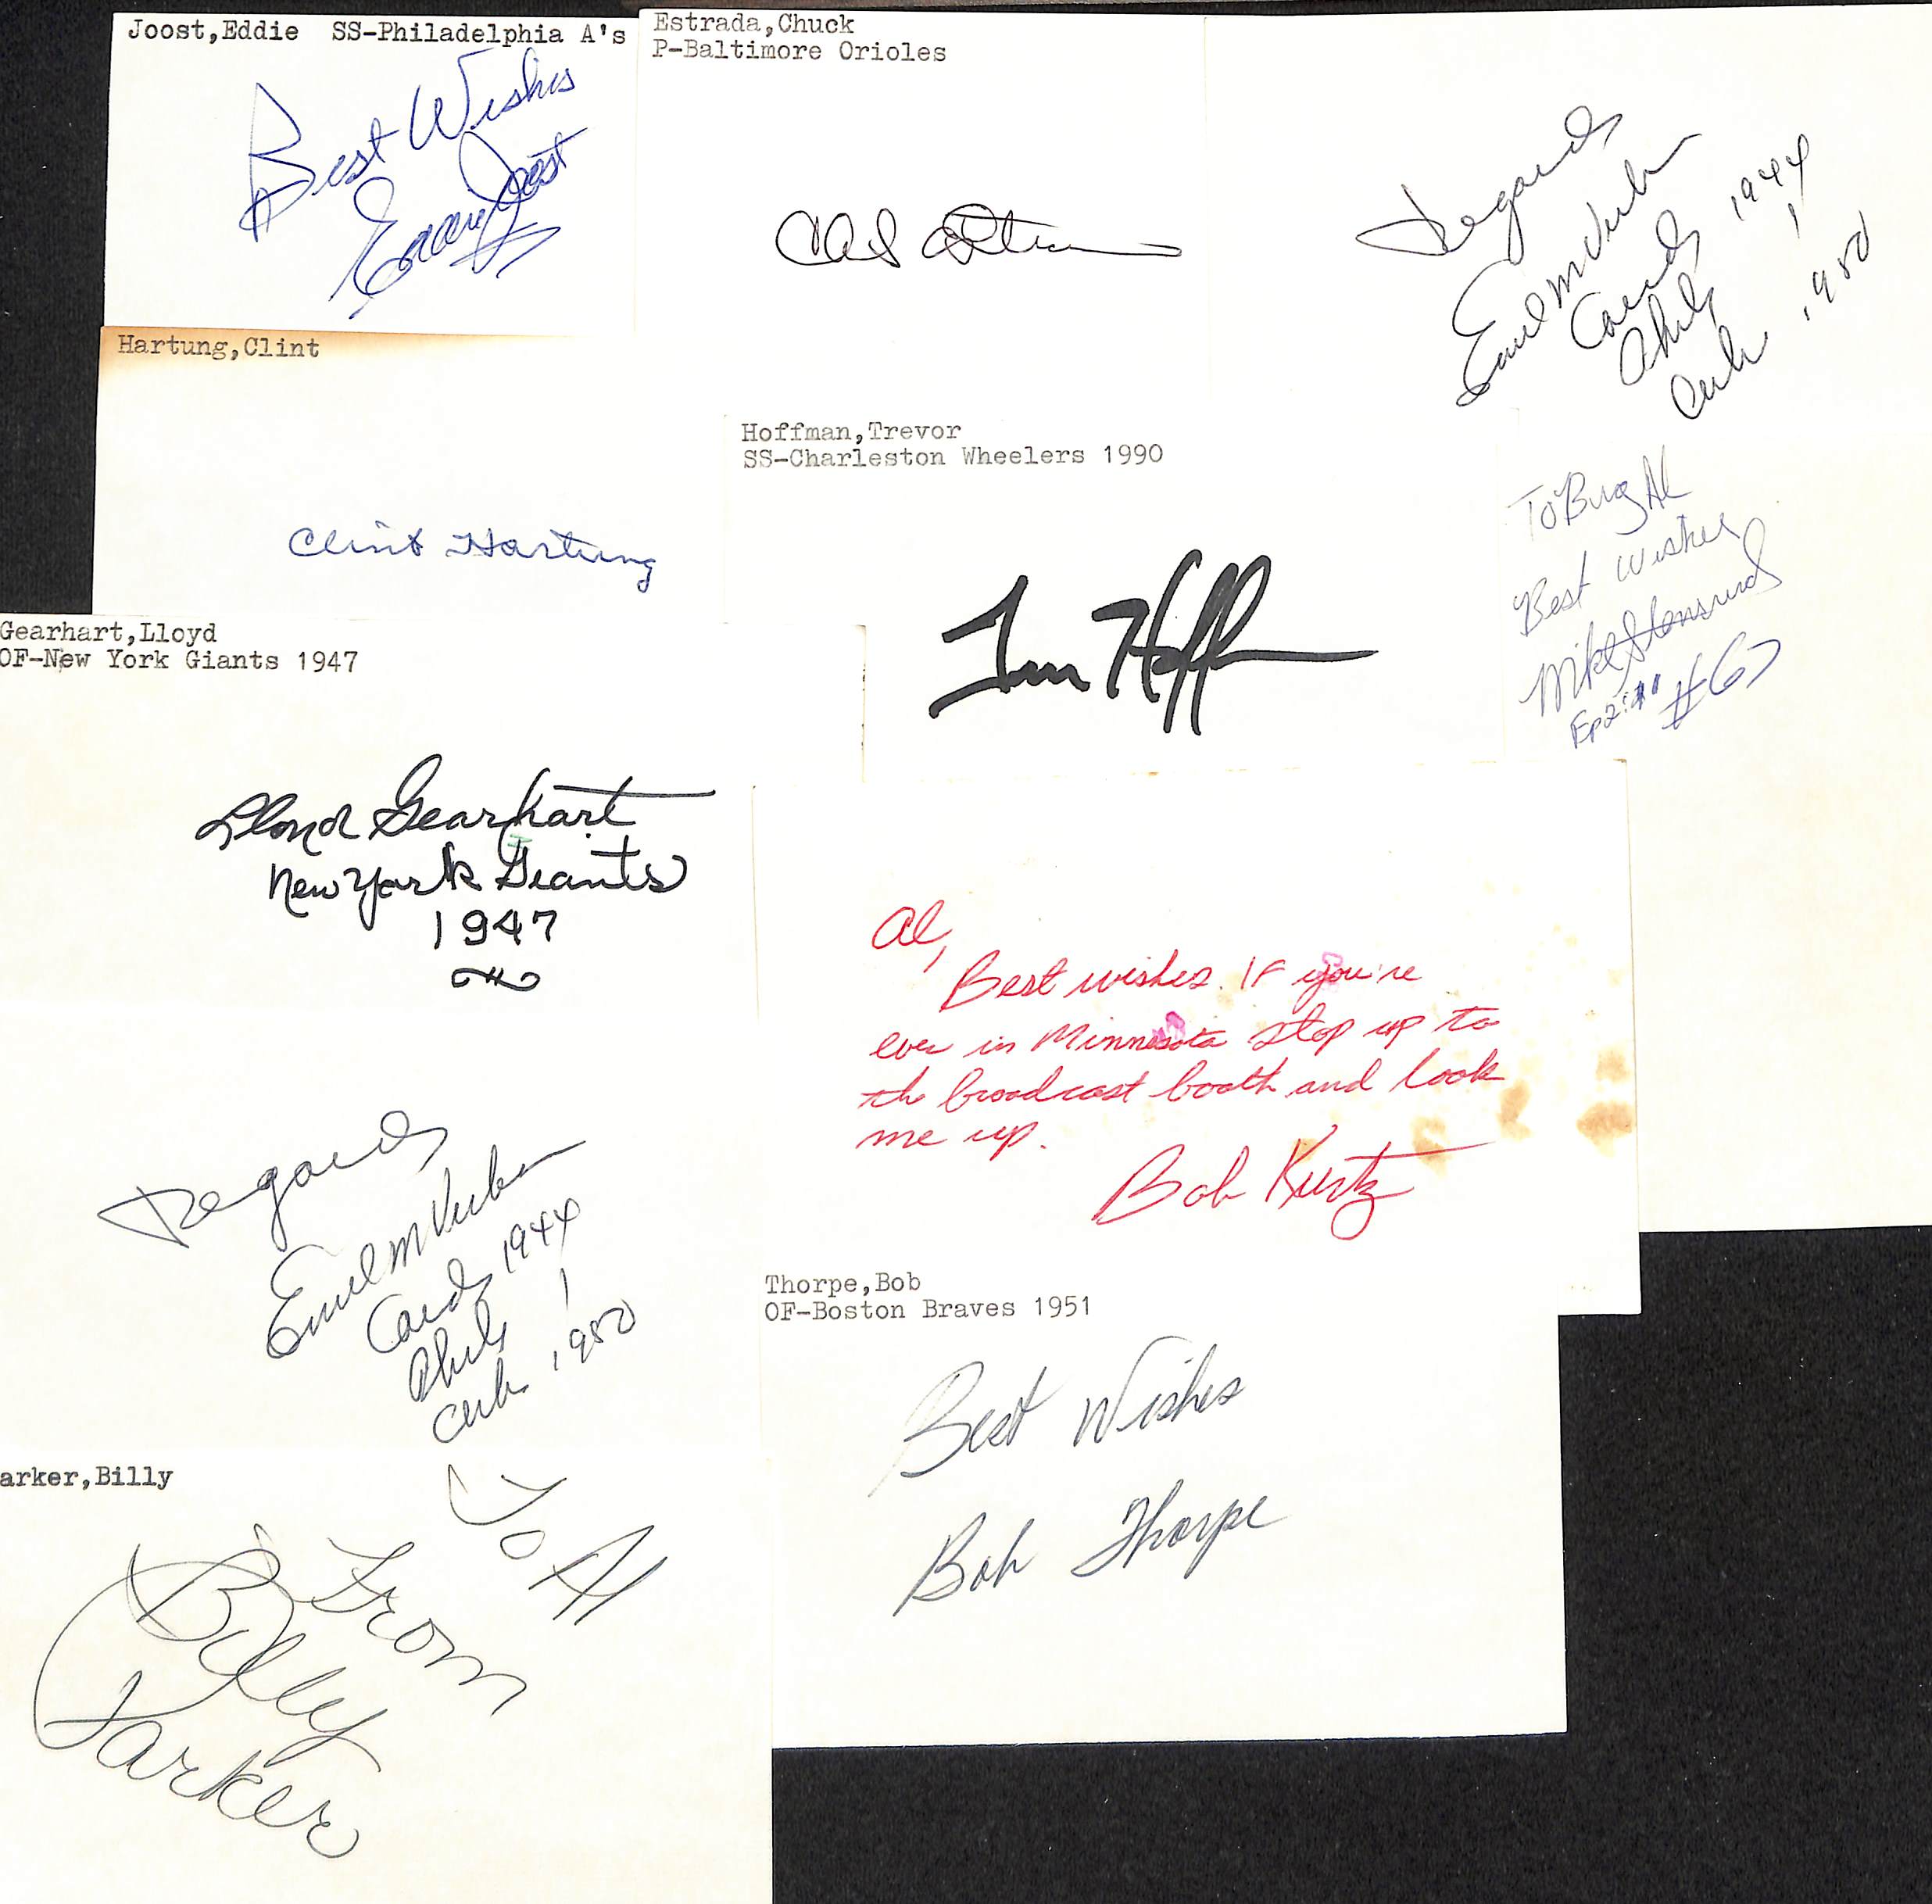 Joost,Eddie SS-Philadelphia A's
Best Wishes
Eddie Joost
Estrada,Chuck
P-Baltimore Orioles
Regards
Emil M Verban
Cards 1944
Phils
Cubs 1950
Hartung,Clint
Clint Hartung
Hoffman,Trevor
SS-Charleston Wheelers 1990
To Big Al
Best Wishes
Mike Stensrud
#67
Gearhart,Lloyd
OF-New York Giants 1947
Lloyd Gearhart
New York Giants
1947
Al,
Best wishes. If you're
ever in Minnesota stop up to
the broadcast booth and look
me up.
Bob Kurtz
Regards
Emil M Verban
Cards 1944
Phils
Cubs 1950
Thorpe,Bob
OF-Boston Braves 1951
Best Wishes
Bob Thorpe
arker,Billy
To Al
From
Billy
Parker